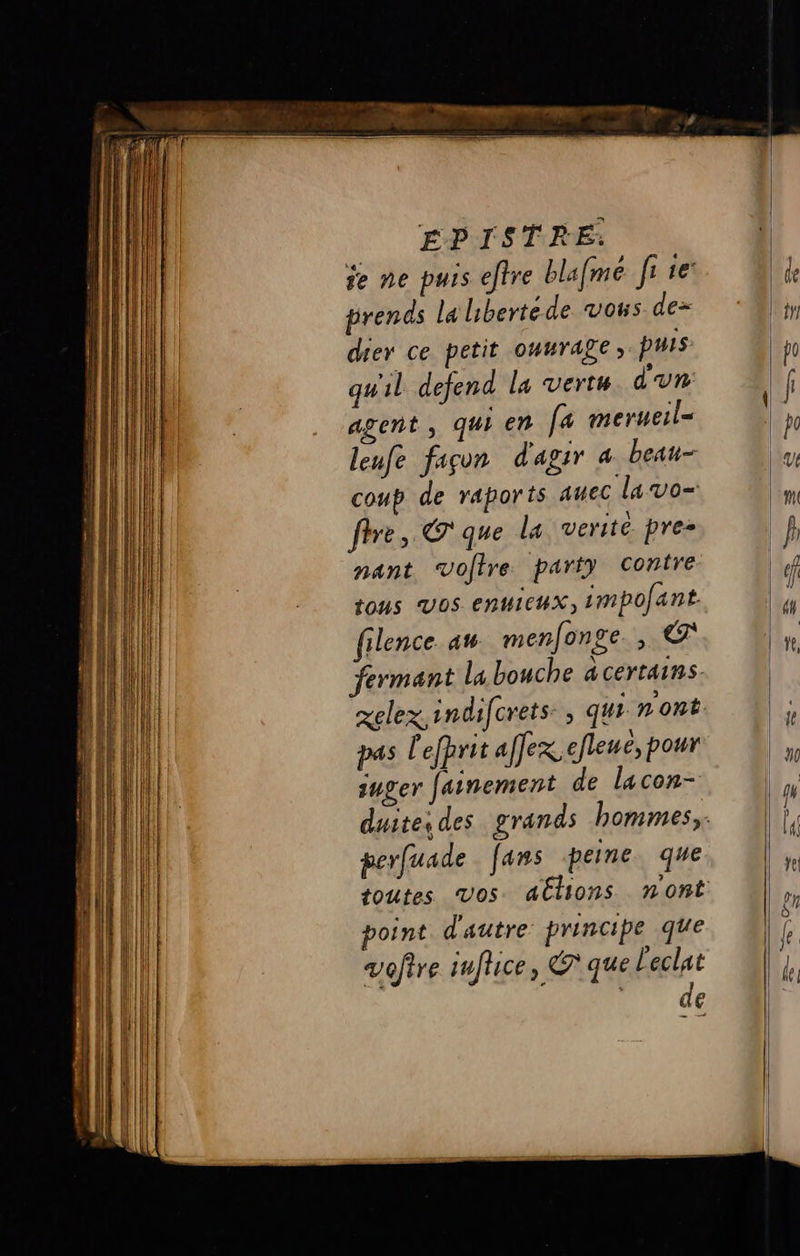 EPISTRE.
ie ne puis eſtre blaſmé ſi ie
prends la liberté de vous de-
dier ce petit ouurage, puis
qu'il defend la vertu d'vn
agent, qui en ſa merueil-
leuſe façon d'agir a beau-
coup de raports auec la vo-
ſtre, & que la verité pre-
nant voſtre party contre
tous vos enuieux, impoſant
ſilence au menſonge, &
fermant la bouche à certains
zelez indiſcrets, qui n'ont
pas l'eſprit aſſez eſleué, pour
iuger ſainement de la con-
duite des grands hommes,
perſuade ſans peine que
toutes vos actions n'ont
point d'autre principe que
voſtre iuſtice, & que l'eclat
de